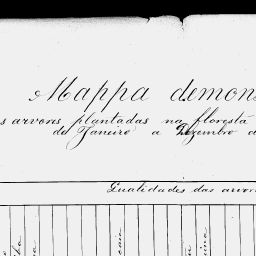 Mappa demons
s arvores plantadas na floresta
de Janeiro a Dezembro d
Qualidades das arvor